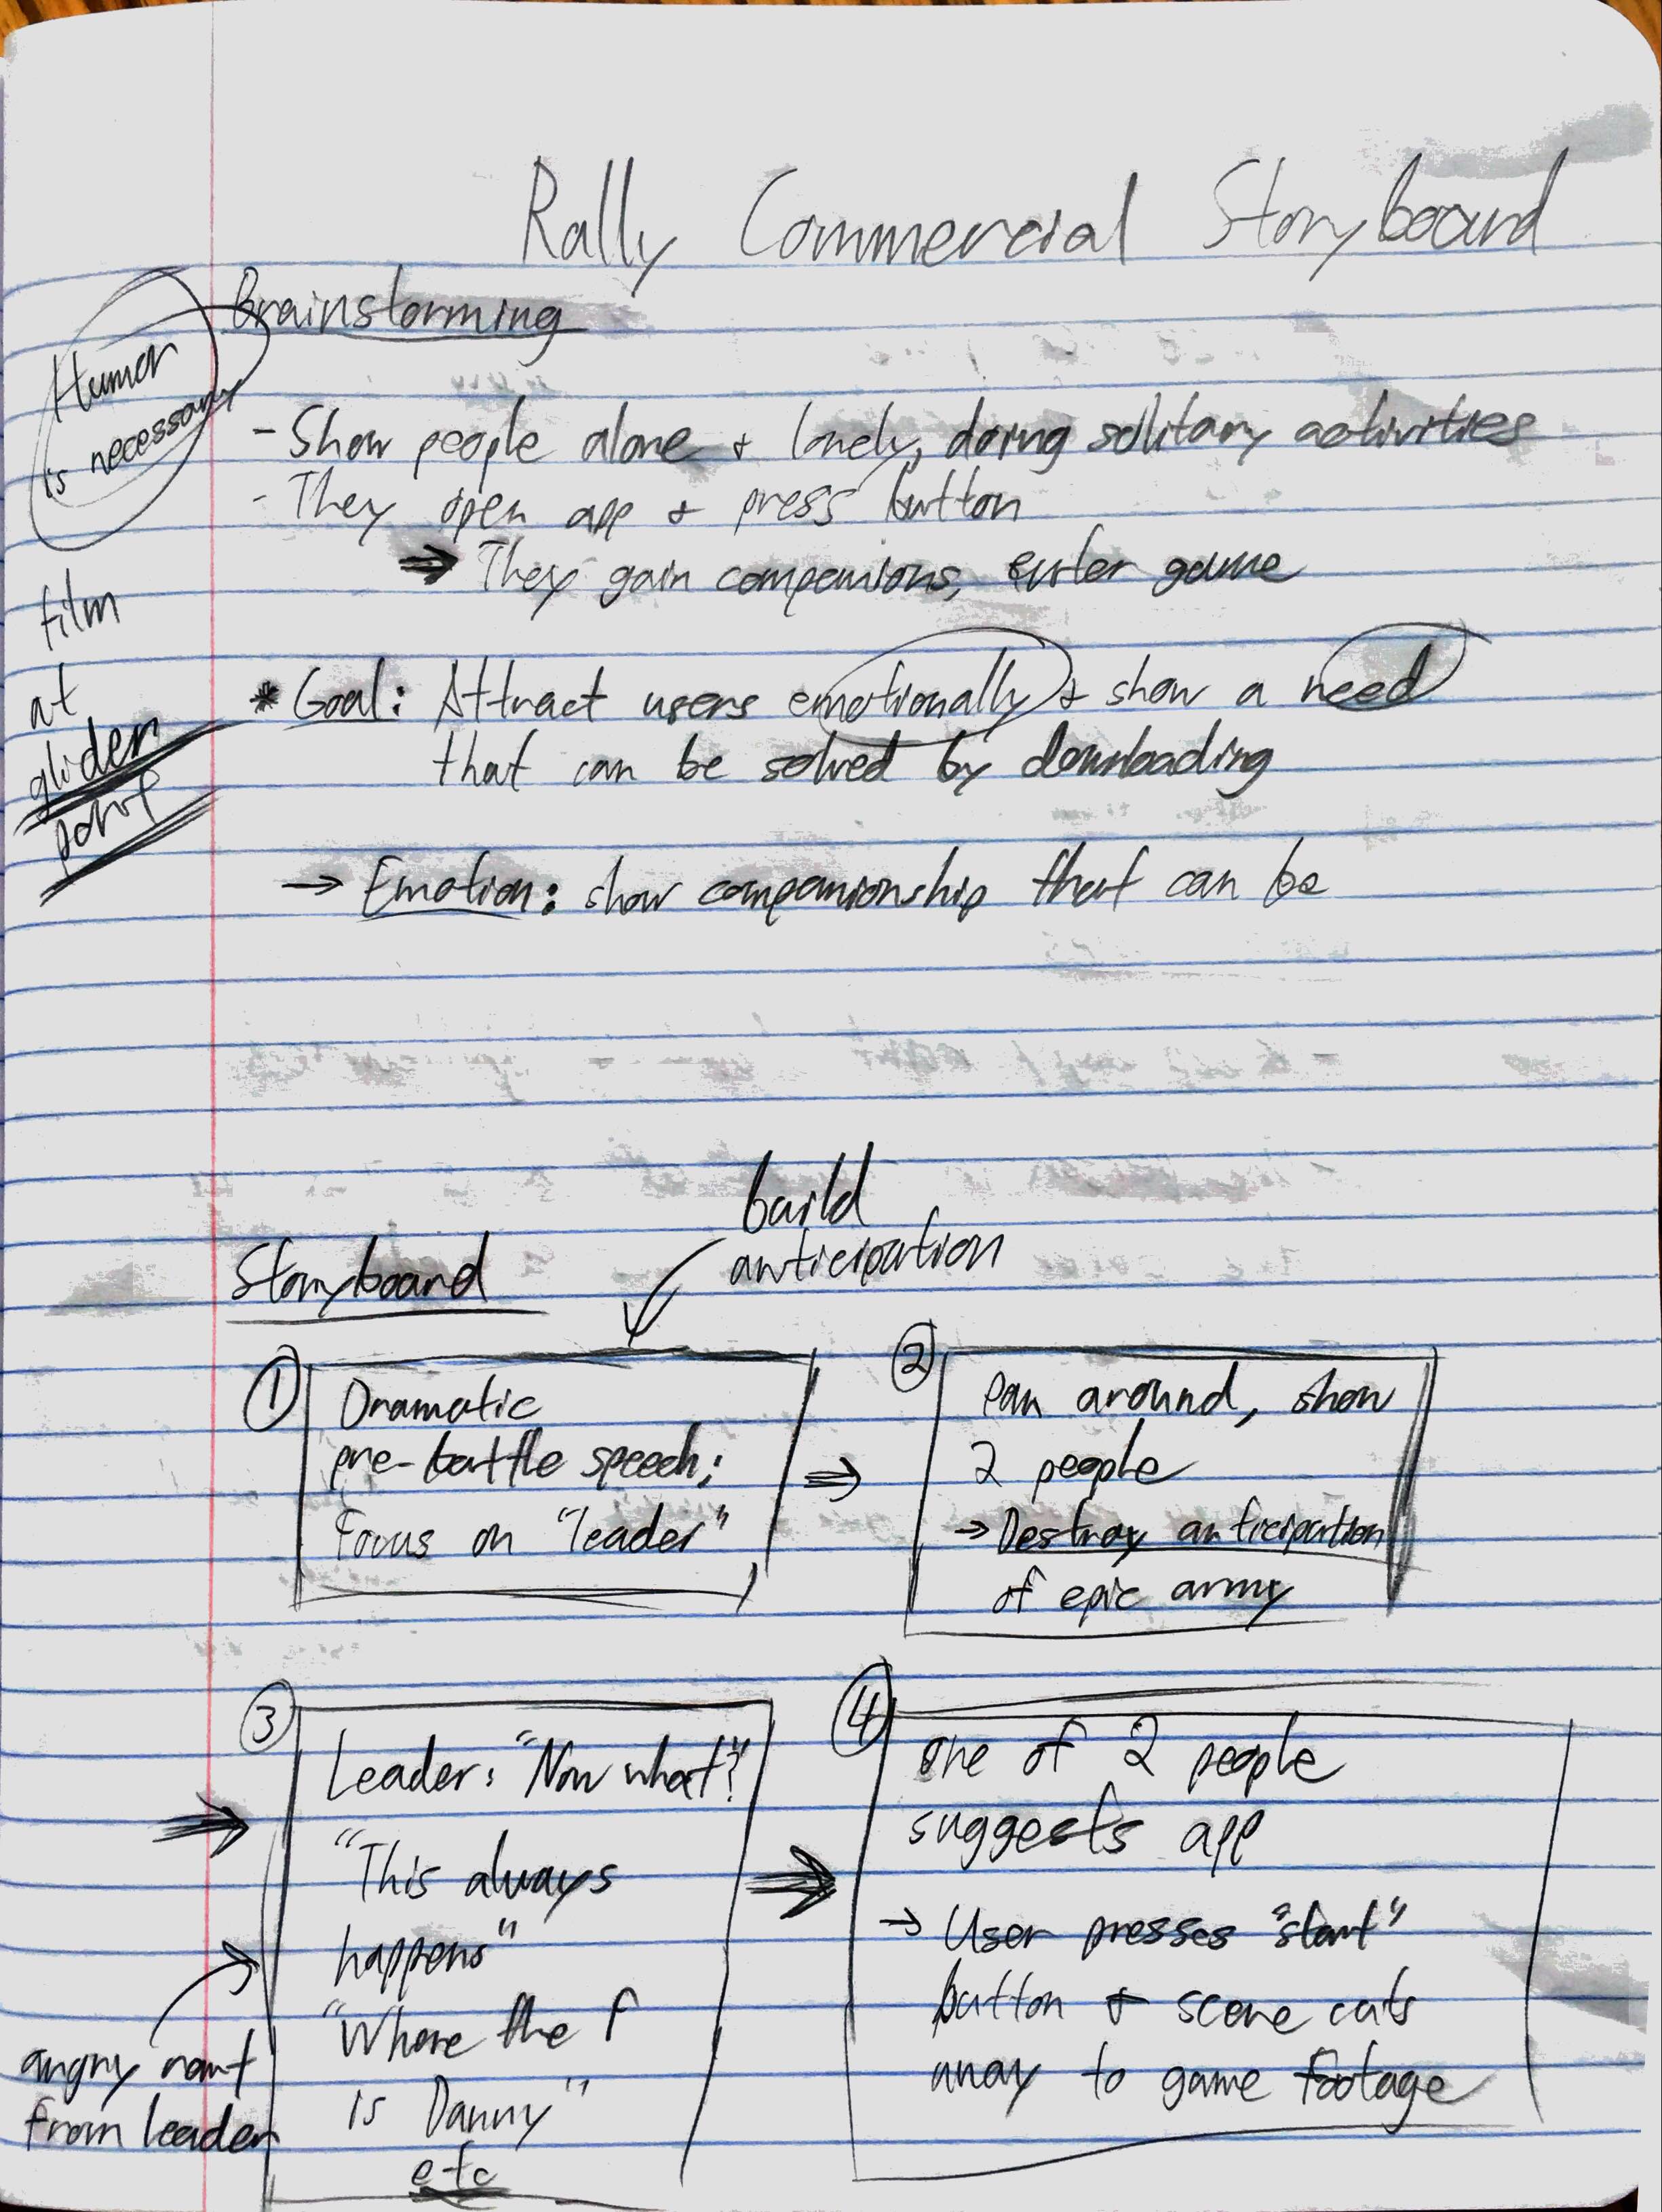 Rally Commercial Storyboard
Brainstorming
Humor
is necessary
- Show people alone & lonely, doing solitary activities
- They open app & press button
⇒ They gain companions, enter game
film
at
glider
port
* Goal: Attract users emotionally & show a need
that can be solved by downloading
→ Emotion: show companionship that can be
build
anticipation
Storyboard
①
Dramatic
pre-battle speech;
Focus on "leader"
⇒
②
Pan around, show
2 people
→ Destroy anticipation
of epic army
⇒
③
Leader: "Now what?"
"This always
happens"
"Where the f
is Danny"
etc
angry rant
from leader
⇒
④
one of 2 people
suggests app
→ User presses "start"
button & scene cuts
away to game footage